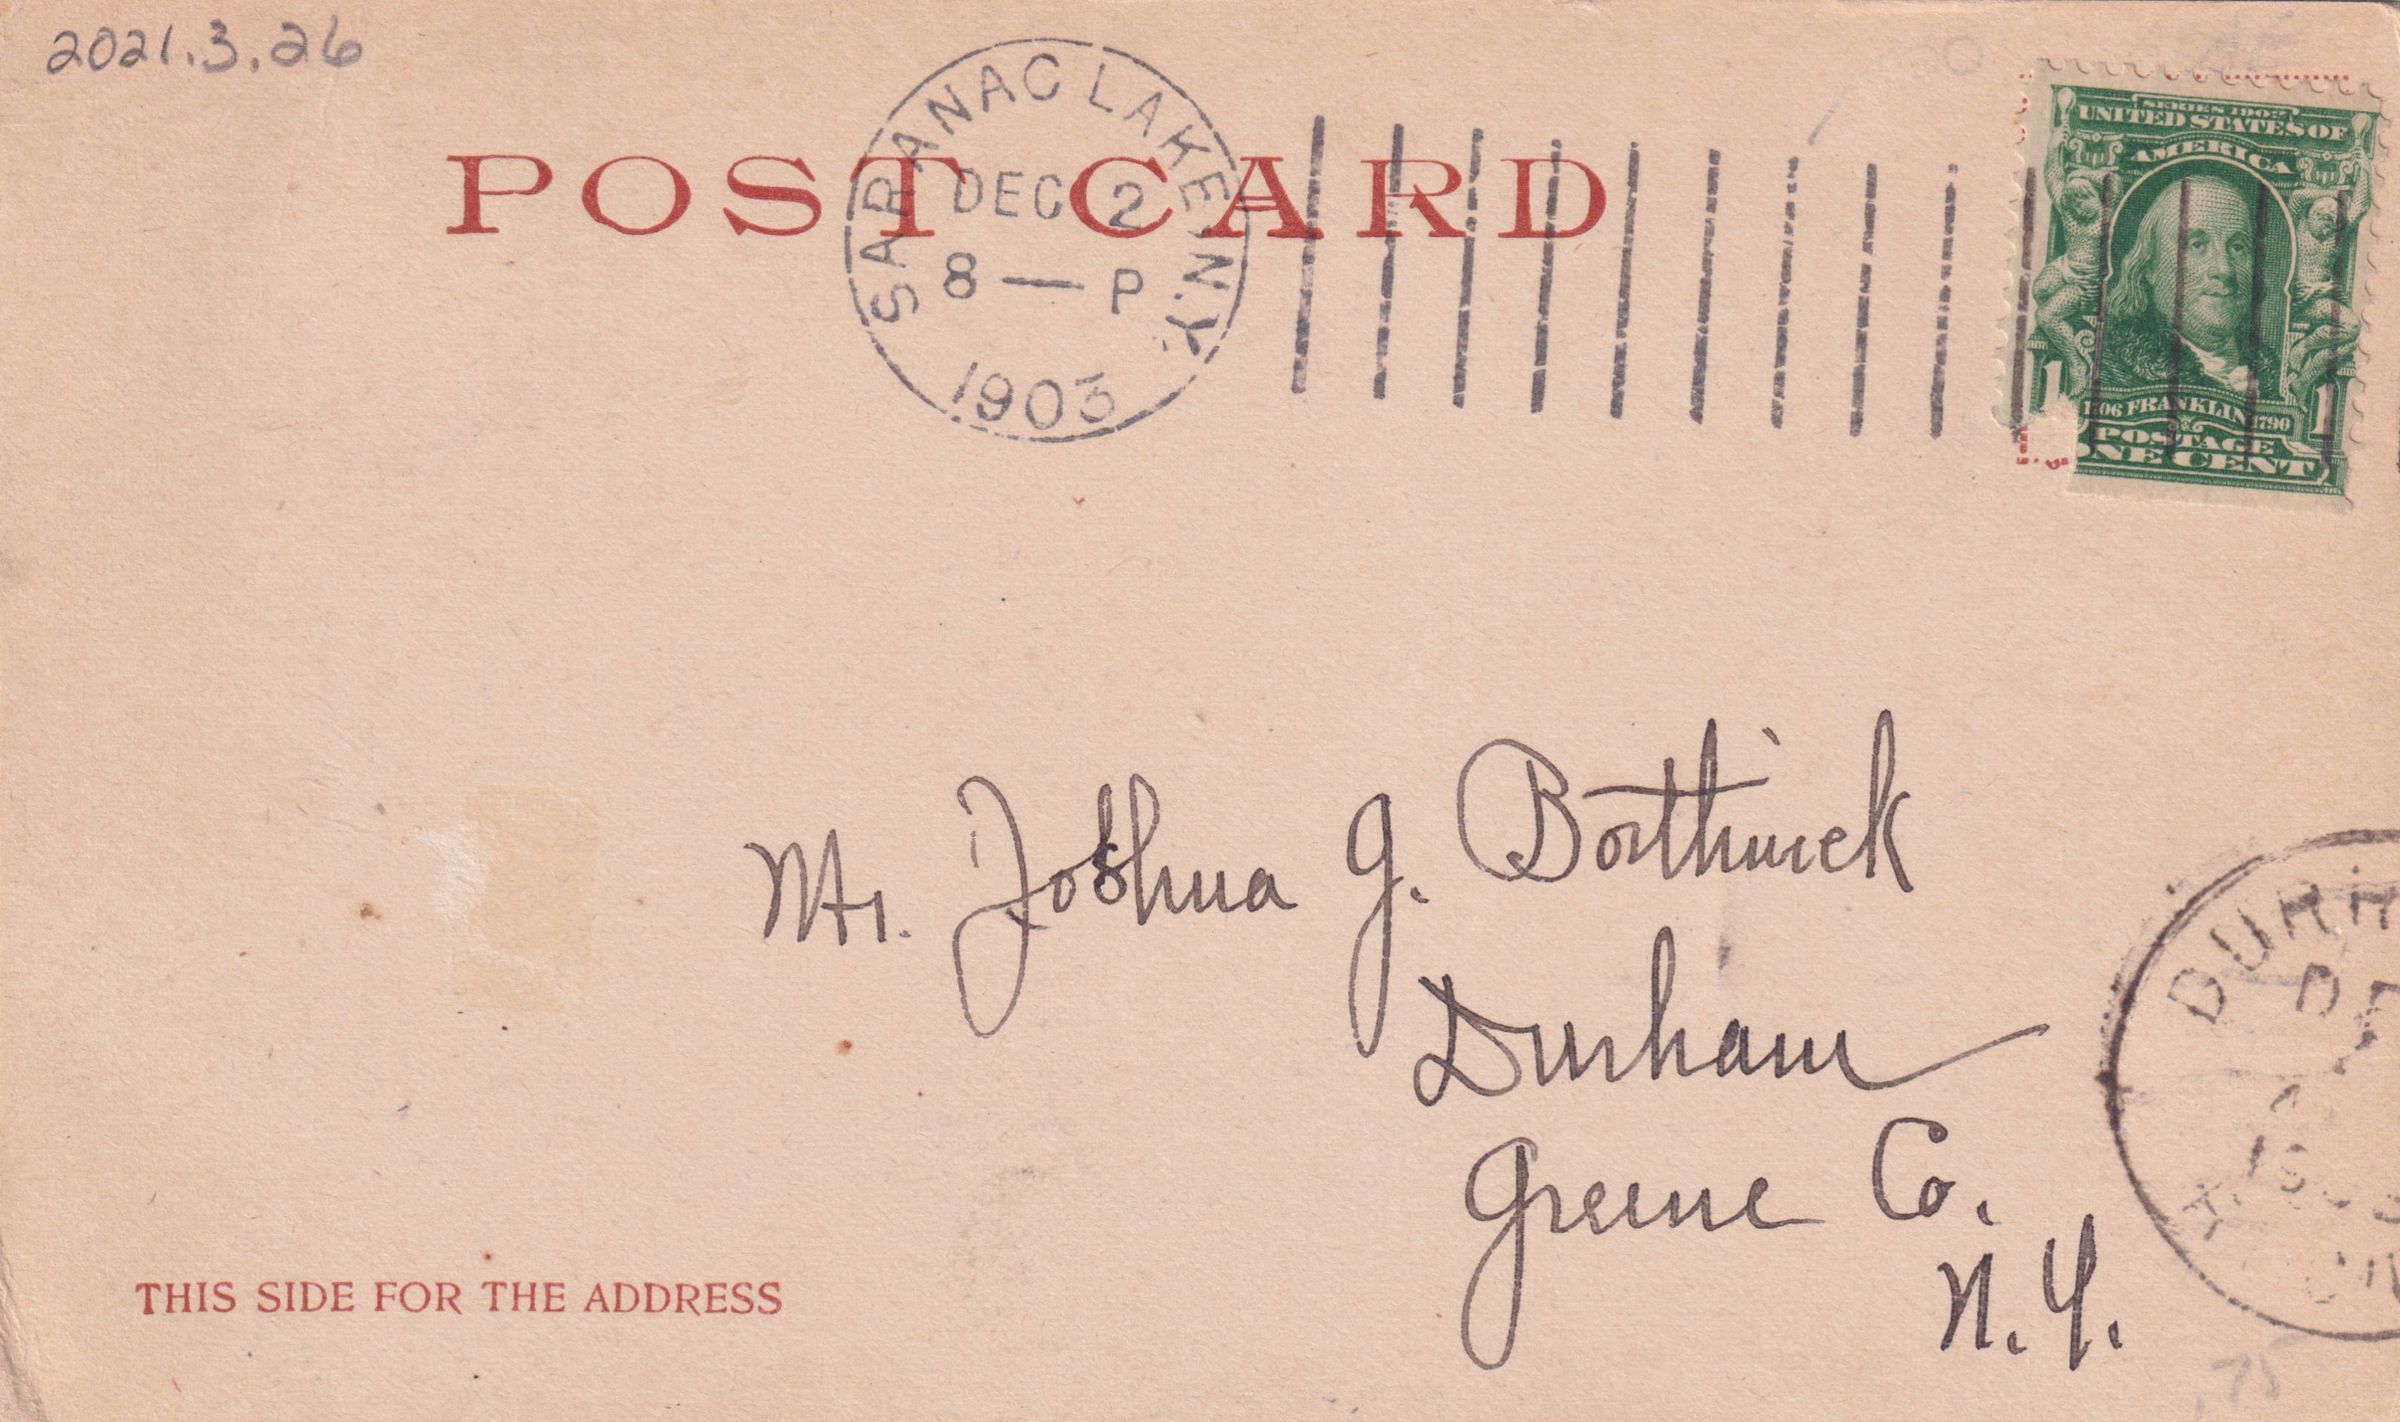 2021.3.26
POST CARD
SARANAC LAKE, N.Y.
DEC 2
8 — P
1903
SERIES 1902
UNITED STATES OF
AMERICA
1 1
1706 FRANKLIN 1790
POSTAGE
ONE CENT
Mr. Joshua G. Borthwick
Durham
Greene Co.
N.Y.
DURH
THIS SIDE FOR THE ADDRESS
.75